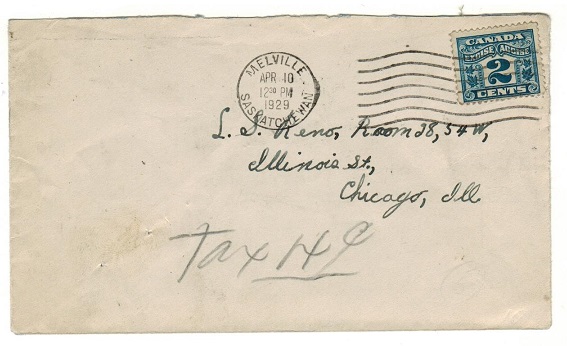 MELVILLE
APR 10
12 30 PM
1929
SASKATCHEWAN
CANADA
EXCISE ACCISE
2
CENTS
L. S. Reno, Room 28, 54 W,
Illinois St.,
Chicago, Ill
Tax 14¢